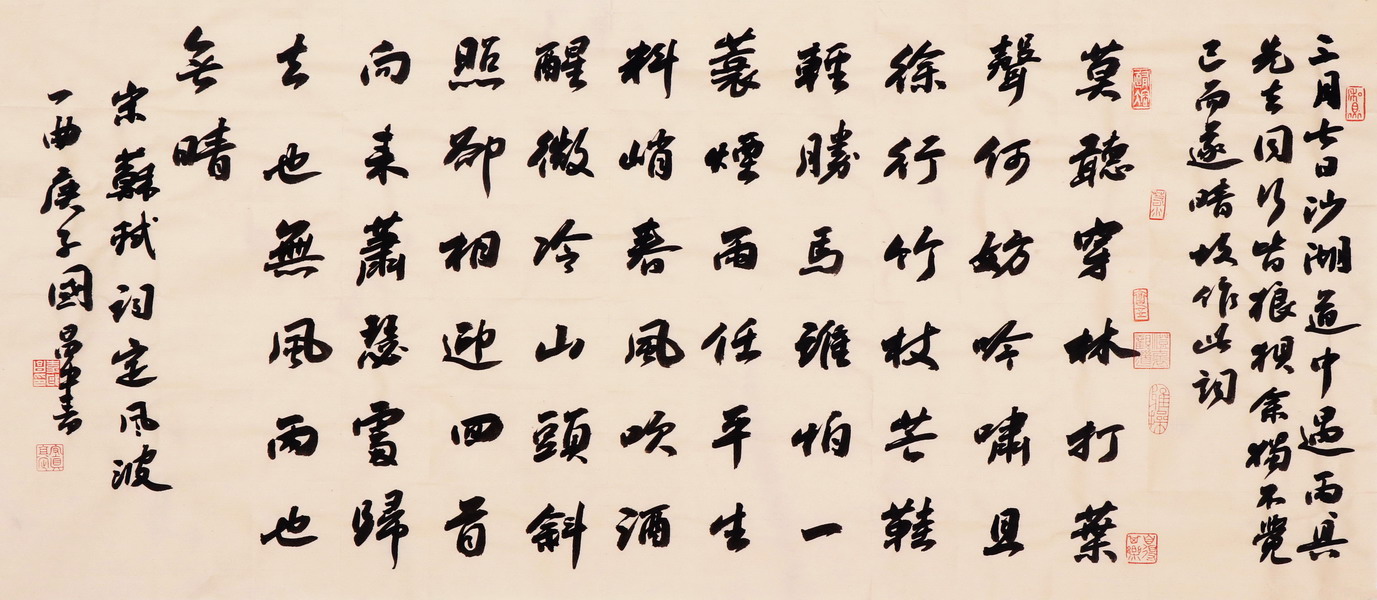 三月七日沙湖道中遇雨具
先去同行皆狼狽余獨不覺
已而遂晴故作此詞
莫聽穿林打葉
聲何妨吟嘯且
徐行竹杖芒鞋
輕勝馬誰怕一
蓑煙雨任平生
料峭春風吹酒
醒微冷山頭斜
照卻相迎回首
向來蕭瑟處歸
去也無風雨也
無晴
宋蘇軾詞定風波
一曲庚子國昌書